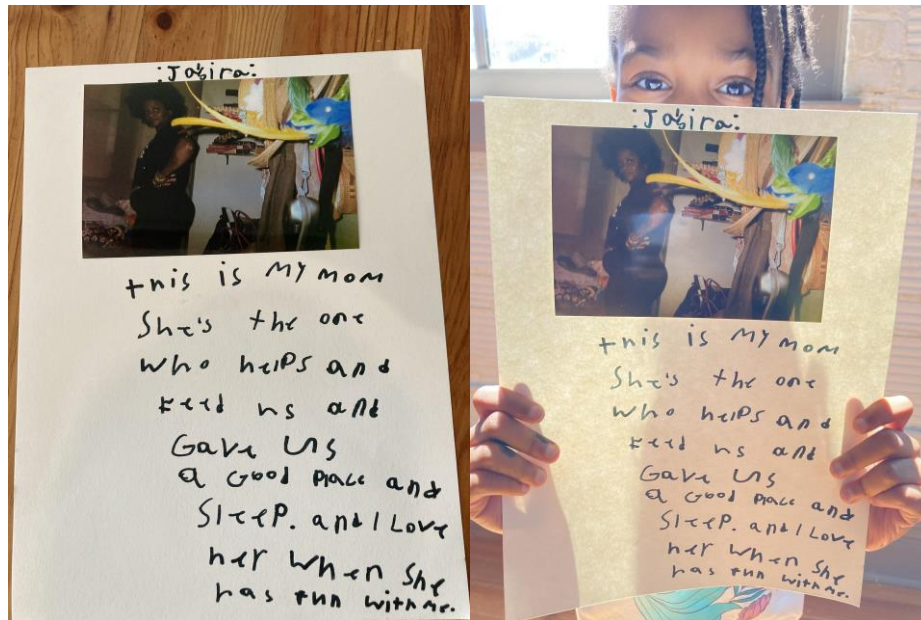 :Ja'sira:
this is My mom
She's the one
who helps and
feed us and
Gave us
a Good place and
Sleep. and I Love
her when She
has fun with me.
:Ja'sira:
this is My mom
She's the one
who helps and
feed us and
Gave us
a Good place and
Sleep. and I Love
her when She
has fun with me.